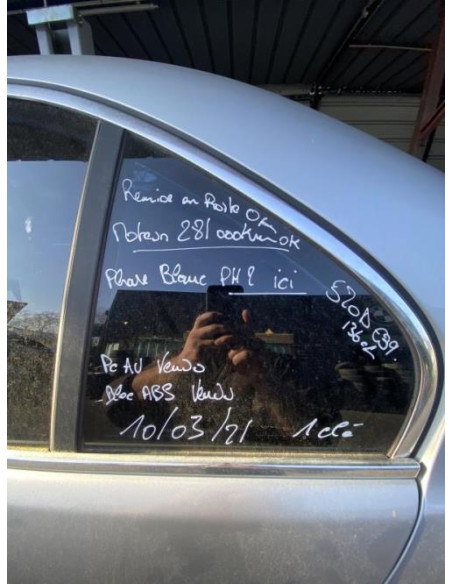 Remise en Route Ok
Moteur 281 000 km OK
Phare Blanc PH2 ici
520D E39
136ch
Pc AV Vendu
Bloc ABS Vendu
10/03/21
1 clé